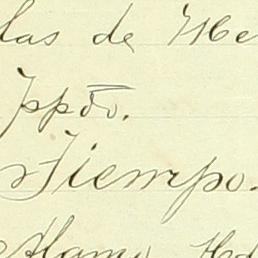 las de Me
Ippdo.
Tiempo.
Alamo Hd